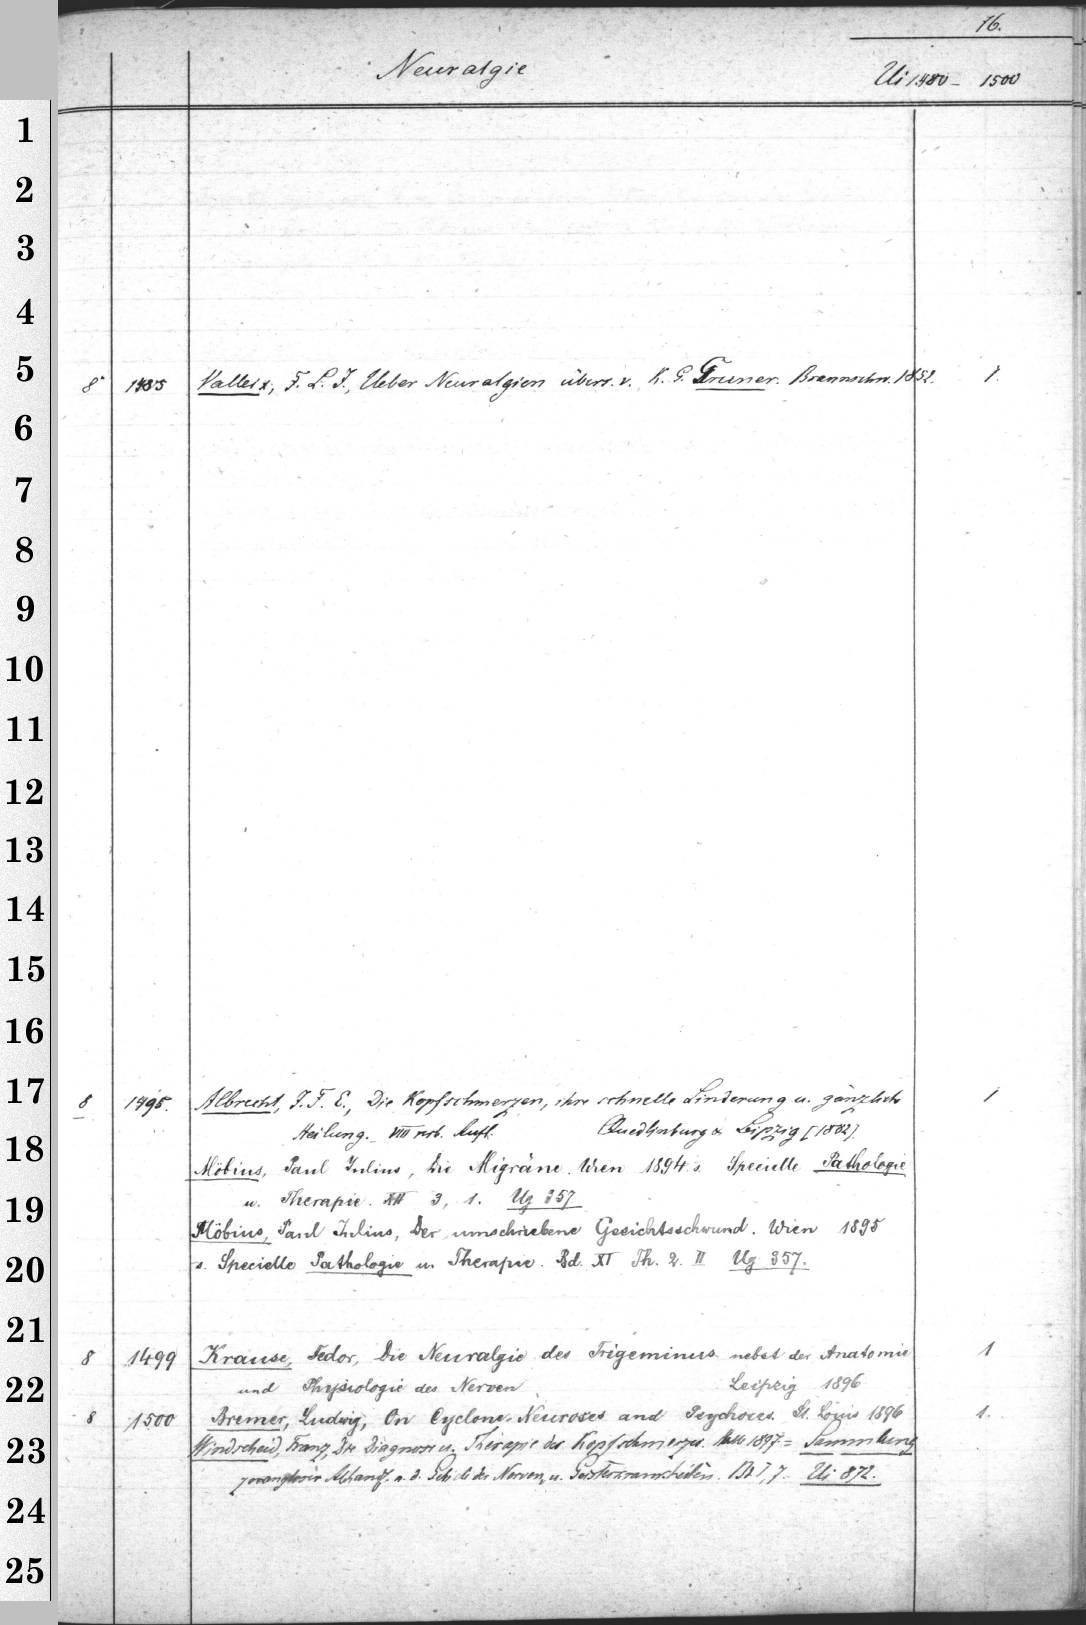 76.
Neuralgie Ui 1480 - 1500
1
2
3
4
5
8° 1485 Valleix, F. L. I., Ueber Neuralgien übers. v. K. G. Gruner. Braunschw. 1852. 1.
6
7
8
9
10
11
12
13
14
15
16
17
8 1495. Albrecht, J. F. E., Die Kopfschmerzen, ihre schnelle Linderung u. gänzliche 1
Heilung. VIII verb. Aufl. Quedlinburg & Leipzig [1802].
18
Möbius, Paul Julius, Die Migräne. Wien 1894 s. Specielle Pathologie
u. Therapie. XII 3, 1. Ug 357
19
Möbius, Paul Julius, Der umschriebene Gesichtsschwund. Wien 1895
s. Specielle Pathologie u. Therapie. Bd. XI Th. 2. II Ug 357.
20
21
8 1499 Krause, Fedor, Die Neuralgie des Trigeminus nebst der Anatomie 1
und Physiologie des Nerven Leipzig 1896
22
8 1500 Bremer, Ludwig, On Cyclone-Neuroses and Psychoses. St. Louis 1896 1.
23
Windscheid, Franz, Die Diagnose u. Therapie des Kopfschmerzes. Halle 1897 = Sammlung
zwangloser Abhandl. a. d. Gebiete der Nerven u. Geisteskrankheiten. Bd I, 7. Ui 872.
24
25